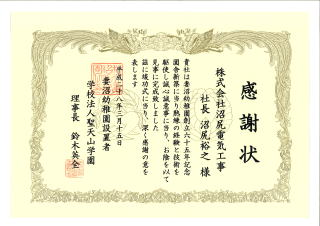 感謝状
株式会社沼尻電気工事
社長 沼尻裕之 様
貴社は妻沼幼稚園創立六十五年記念
園舎新築に当り熟練の経験と技術を
駆使し誠心誠意事に当り、お陰を以て
見事に完成致しました
茲に竣功式に当り、深く感謝の意を
表します
平成二十八年三月十五日
妻沼幼稚園設置者
学校法人聖天山学園
理事長 鈴木英全